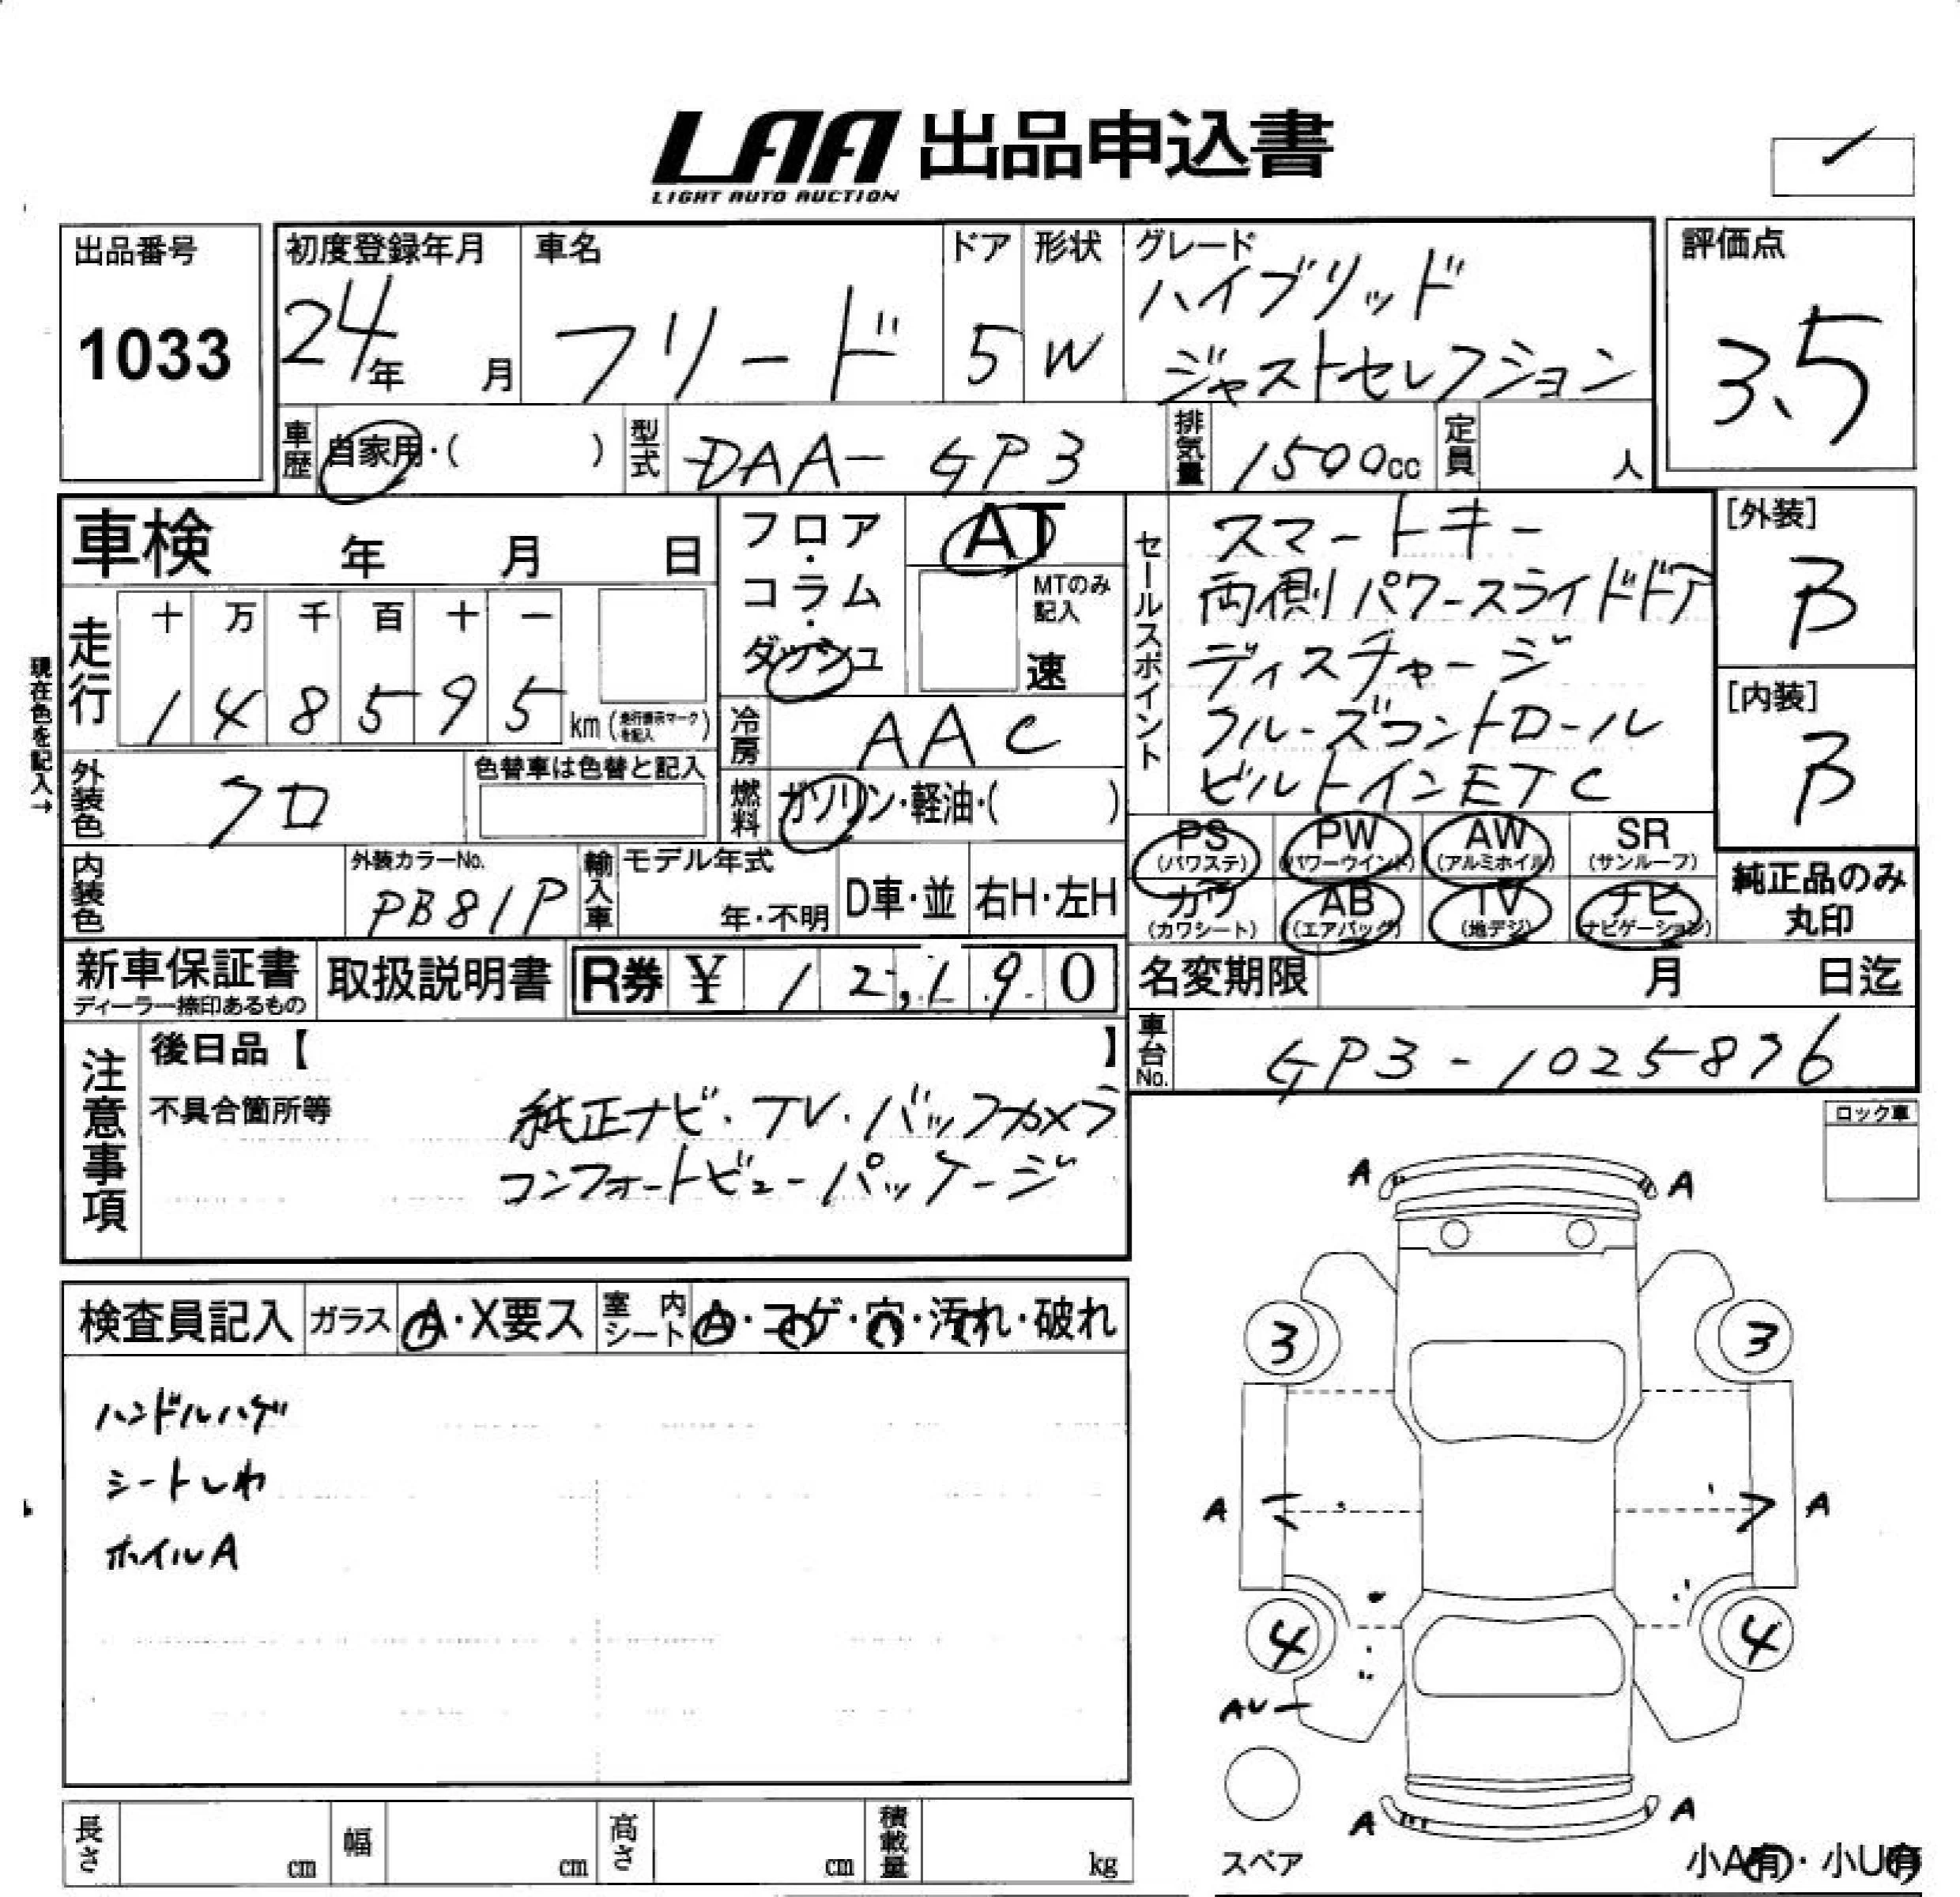 LAA 出品申込書
LIGHT AUTO AUCTION
出品番号
1033
初度登録年月
24年 月
車名
フリード
ドア
5
形状
W
グレード
ハイブリッド
ジャストセレクション
評価点
3.5
車歴 自家用・( )
型式 DAA-GP3
排気量 1500cc
定員 人
車検 年 月 日
フロア・コラム・ダッシュ
AT
MTのみ記入
速
セールスポイント
スマートキー
両側パワースライドドア
ディスチャージ
クルーズコントロール
ビルトインETC
[外装]
B
[内装]
B
現在色を記入→
走行
十 万 千 百 十 一
1 4 8 5 9 5 km (走行表示マークを記入)
冷房 AAC
外装色 クロ
色替車は色替と記入
燃料 ガソリン・軽油・( )
内装色
外装カラーNo.
PB81P
輸入車
モデル年式
年・不明
D車・並
右H・左H
PS (パワステ)
PW (パワーウインド)
AW (アルミホイル)
SR (サンルーフ)
カワ (カワシート)
AB (エアバッグ)
TV (地デジ)
ナビ (ナビゲーション)
純正品のみ
丸印
新車保証書
ディーラー捺印あるもの
取扱説明書
R券 ¥ 12,190
名変期限 月 日迄
車台No. GP3-1025876
注意事項
後日品【 】
不具合箇所等
純正ナビ・TV・バックカメラ
コンフォートビューパッケージ
ロック車
検査員記入
ガラス A・X要ス
室内シート A・コゲ・穴・汚れ・破れ
ハンドルハゲ
シートしわ
ホイルA
A A
3 3
A A
4 4
AU
A A
スペア
小A有・小U有
長さ cm
幅 cm
高さ cm
積載量 kg